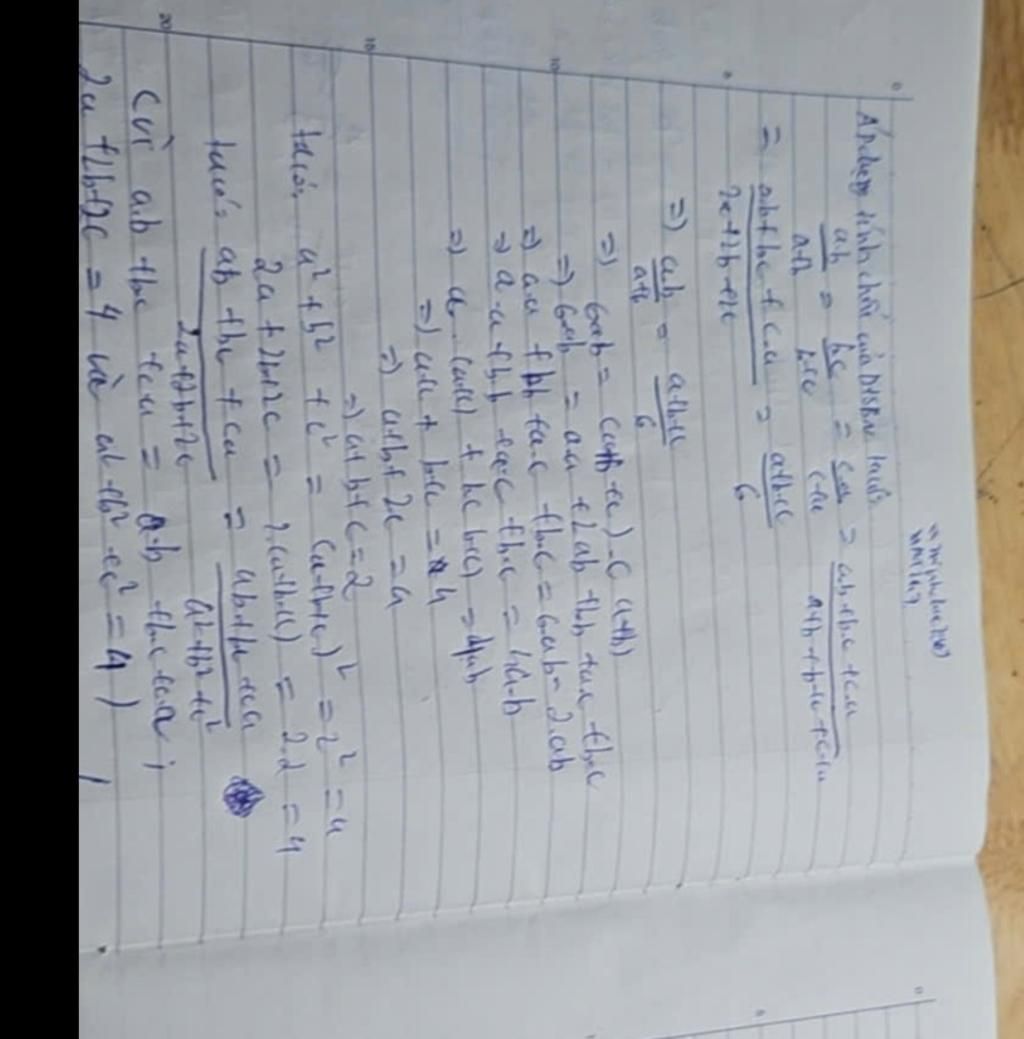 Áp dụng tính chất của DTSBN ta có
ab/a+b = bc/b+c = ca/c+a = ab+b.c+c.a/a+b+b+c+c+a
= ab+bc+c.a/2a+2b+2c = a+b+c/6
=> a.b/a+b = a+b+c/6
=> 6ab = (a+b+c).(a+b)
=> 6ab = a.a+2ab+b.b+a.c+b.c
=> a.a+b.b+a.c+b.c=6.ab-2.ab
=> a.a+b.b+a.c+b.c=4a.b
=> a.(a+c)+b(b+c)=4a.b
=> a+c+b+c=4
=> a+b+2c=4
=> a+b+c=2
ta có: a²+b²+c²=(a+b+c)²=2²=4
2a+2b+2c=2.(a+b+c)=2.2=4
ta có: ab+bc+ca/2a+2b+2c = ab+bc+ca/a²+b²+c²
(vì a.b+b.c+c.a=a.b+b.c+c.a;
2a+2b+2c=4 và a²+b²+c²=4)